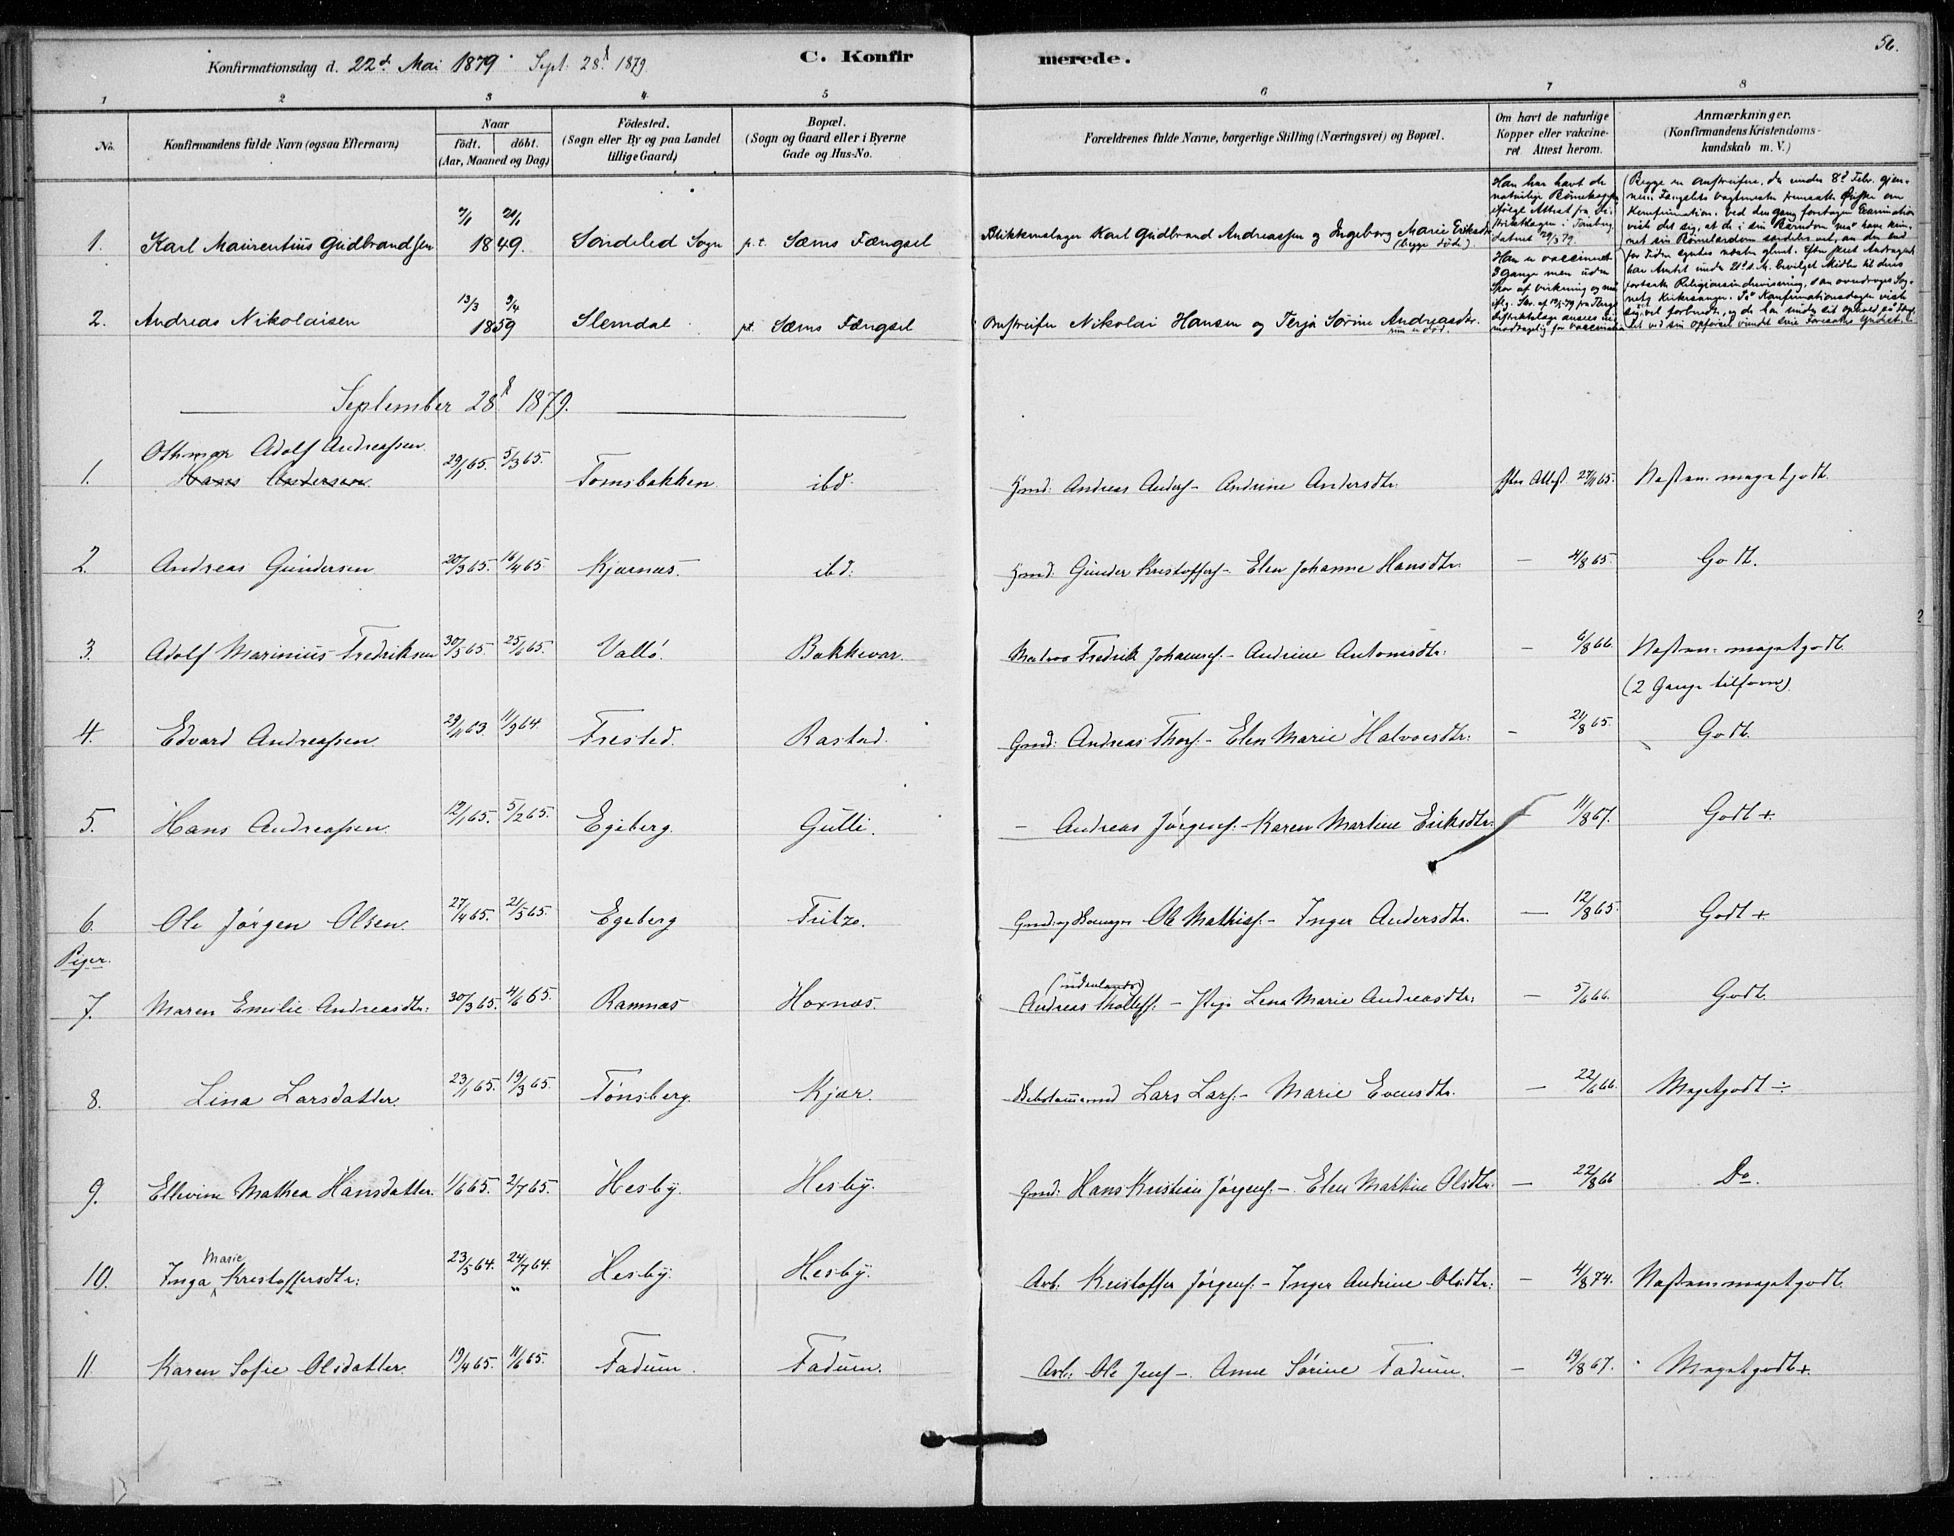 56.
Konfirmationsdag d. 22d. Mai 1879. Sept. 28d 1879.
C. Konfirmerede.
1 2 3 4 5 6 7 8
No. Konfirmandens fulde Navn (ogsaa Efternavn) Naar födt. döbt. (Aar, Maaned og Dag) Födested. (Sogn eller By og paa Landet tillige Gaard) Bopæl. (Sogn og Gaard eller i Byerne Gade og Hus-No. Forældrenes fulde Navne, borgerlige Stilling (Næringsvei) og Bopæl. Om havt de naturlige Kopper eller vakcineret. Attest herom. Anmærkninger. (Konfirmandens Kristendomskundskab m. V.)
1. Karl Maurentius Gudbrandsen 1849. Söndeled Sogn p.t. Sæms Fængsel Blikkenslager Karl Gudbrand Andreassen og Ingeborg Marie Eriksdtr (begge döde)
Han har havt de naturlige Börnekopper ifölge Attest fra Distriktslægen i Tönsberg
2. Andreas Nikolaisen 13/3 9/4 1859 Slemdal p.t. Sæms Fængsel Omstreifer Nikolai Hansen og Terja Sörine Andreasdtr.
Han er vaccineret 3 Gange men uden Spor af virkning
September 28d 1879.
1. Othmar Adolf Andreassen Hans Andersen 29/1 65. 5/3 65. Tomsbakken ibd. Gmd. Andreas Anders. - Andrine Andersdtr. efter Attest 27/11 65. Næsten megetgodt.
2. Andreas Gundersen 20/3 65. 16/4 65 Kjærnæs. ibd. Gmd. Gunder Kristoffers. - Elen Johanne Hansdtr. — 4/8 65. Godt.
3. Adolf Marinius Fredriksen 30/5 65 25/6 65. Vallö. Bakkevar. Matros Fredrik Johannes. - Andrine Antonisdtr. — 6/8 66. Næsten megetgodt.
(2 Gange tilforn)
4. Edvard Andreassen 29/11 63. 11/3 64. Frested. Rastad. Gmd. Andreas Thors. - Elen Marie Halvorsdtr. — 21/8 65. Godt.
5. Hans Andreassen. 12/1 65. 5/2 65. Egeberg. Gulli. — Andreas Jörgens. - Karen Martine Eriksdtr. — 11/8 67. Godt +.
6. Ole Jörgen Olsen. 27/4 65. 21/5 65. Egeberg Fritzo. Gmd. og Ole Mathis. - Inger Andersdtr. — 12/8 65. Godt +
Piger.
7. Maren Emilie Andreasdtr. 30/3 65. 4/6 65. Ramnæs Hoxnæs. (udenlands) Andreas Thollefs. - Pige Lena Marie Andreasdtr. — 5/6 66. Godt.
8. Lina Larsdatter. 23/1 65. 19/3 65. Tönsberg. Kjær. Lars Lars. - Marie Evensdtr. — 22/6 66. Megetgodt ÷
9. Ellevine Mathea Hansdatter. 1/6 65. 2/7 65. Hesby. Hesby. Gmd. Hans Kristian Jörgens. - Elen Martine Olsdtr. — 22/8 66 Do.
10. Inga Marie Kristoffersdtr. 23/5 64. 24/7 64. Hesby. Hesby. Arb. Kristoffer Jörgens. - Inger Andrine Olsdtr. — 4/8 74. Næsten megetgodt.
11. Karen Sofie Olsdatter. 19/4 65. 11/6 65. Fadum. Fadum. Arb. Ole Jens. - Anne Sörine Fadum. — 19/8 67. Megetgodt +.